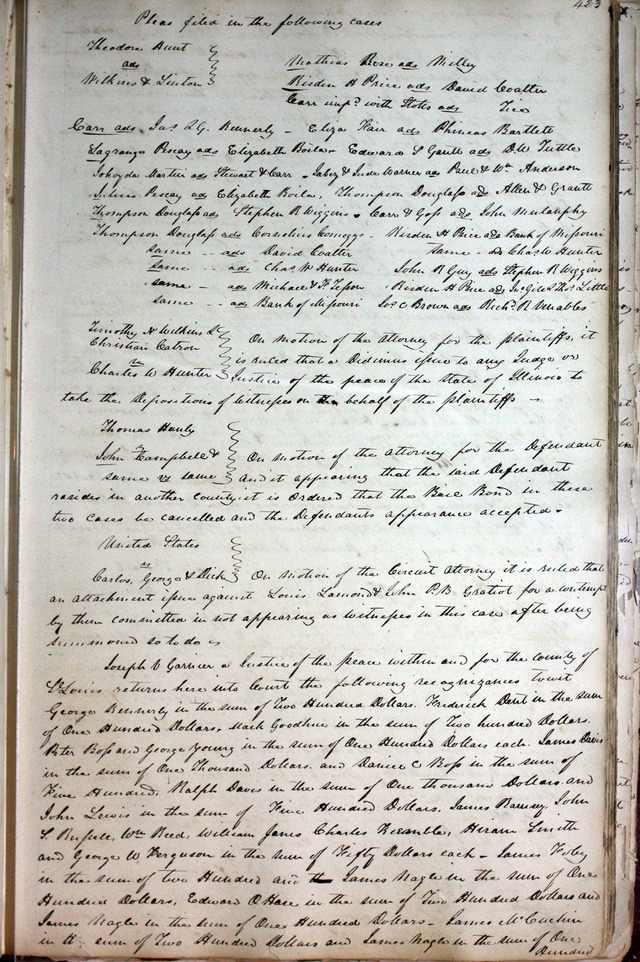 423
Pleas filed in the following cases
Theodore Hunt
ads
Wilkins & Linton
Mathias Rose ads Milley
Risden H Price ads David Coalter
Carr imp.d with Stokes ads Tico
Carr ads Jas. & G. Kennerly - Eliza Fair ads Phineas Bartlett
Lagrange Pescay ads Elizabeth Boila - Edward S Gantt ads D W Tuttle
Martin ads Stewart & Carr - Jabez & Warner ads Paul & Wm Anderson
Julius Pescay ads Elizabeth Boila, Thompson Douglass ads Allen & Grant
Thompson Douglass ads Stephen R Wiggins - Carr & Goss ads John Mulanphy
Thompson Douglass ads Cornelius Comegys - Risden H Price ads Bank of Missouri
same - ads David Coalter same - ads Chas W Hunter
same - ads Chas. W Hunter John R Guy ads Stephen R Wiggins
same - ads Michael & F. Tesson Risden H Price ads Jno. Giles Thos. Little
same - ads Bank of Missouri Jos C Brown ads Rich.d R Venables
Timothy N Wilkins &
Christian Catron
vs
Charles W Hunter
On motion of the attorney for the plaintiffs, it
is ruled that a Didimus issue to any Judge or
Justice of the peace of the State of Illinois to
take the Depositions of witnesses on behalf of the plaintiffs -
Thomas Hanly
vs
John Campbell &
same vs same
On motion of the attorney for the Defendant
and it appearing that the said Defendant
resides in another county it is ordered that the Bail Bond in these
two cases be cancelled and the Defendants appearance accepted -
United States
vs
Carlos, George & Dick
On motion of the Circuit Attorney it is ruled that
an attachment issue against Louis Lamond & John P. B Gratiot for a contempt
by them committed in not appearing as witnesses in this case after being
summoned so to do -
Joseph V Garnier a Justice of the peace within and for the county of
St Louis returns here into Court the following recognizances to wit
George Kennerly in the sum of Two Hundred Dollars. Frederick Dent in the sum
of One Hundred Dollars, Mack Goodhue in the sum of Two hundred Dollars.
Peter Boss and George Young in the sum of One Hundred Dollars each. James Davis
in the sum of One Thousand Dollars. and Daniel C Boss in the sum of
Five Hundred, Ralph Davis in the sum of One thousand Dollars and
John Lewis in the sum of Five Hundred Dollars. James Ramsey, John
S. Russell, Wm Reed, William Janes Charles Keemble, Hiram Smith
and George W Ferguson in the sum of Fifty Dollars each - James Foley
in the sum of two Hundred and James Nagle in the sum of One
Hundred Dollars, Edward O Hare in the sum of Two Hundred Dollars and
James Nagle in the sum of One Hundred Dollars - James McCuchin
in the sum of Two Hundred Dollars and James Nagle in the sum of One
Hundred